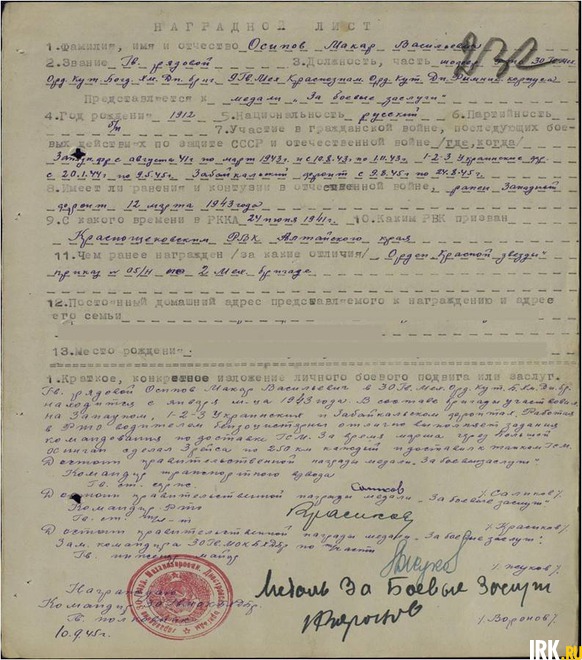 НАГРАДНОЙ ЛИСТ
1. Фамилия, имя и отчество Осипов Макар Васильевич
2. Звание Гв. рядовой 3. Должность, часть 30 Гв. Мех.
Орд. Кут. Богд. Хм. Дн. бриг. 9 Гв. Мех. Краснознам. Орд. Кут. Дн. Рымник. корпуса
Представляется к медали „За боевые заслуги“
4. Год рождения 1912 5. Национальность русский 6. Партийность
б/п 7. Участие в гражданской войне, последующих бое-
вых действиях по защите СССР и отечественной войне /где, когда/
Зап. фр. с августа 41г по март 1943г. и с 10.8.43. по 1.10.43. 1-2-3 Украинские фр.
с 20.1.44г по 9.5.45г. Забайкальский фронт с 9.8.45г по 24.8.45г.
8. Имеет ли ранения и контузии в отечественной войне, ранен Западный
фронт 12 марта 1943 года
9. С какого времени в РККА 24 июня 1941г. 10. Каким РВК призван
Краснощековским РВК Алтайского края
11. Чем ранее награжден /за какие отличия/ Орден Красной звезды
приказ № 05/н от 2 Мех. Бригаде
12. Постоянный домашний адрес представляемого к награждению и адрес
его семьи
13. Место рождения
1. Краткое, конкретное изложение личного боевого подвига или заслуг.
Гв. рядовой Осипов Макар Васильевич в 30 Гв. Мех. Орд. Кут. Б. Хм. Дн. Бр.
находится с января м-ца 1943 года. В составе бригады участвовал
на Западном, 1-2-3 Украинских и Забайкальском фронтах. Работая
в РТО водителем бензоцистерны отлично выполняет задания
командования по доставке ГСМ. За время марша через Большой
Хинган сделал 3 рейса по 250 км каждый и доставил к танкам ГСМ.
Достоин правительственной награды медали „За боевые заслуги“
Командир транспортного взвода
Гв. ст. серж. Саликов /Саликов/
Достоин правительственной награды медали „За боевые заслуги“
Командир РТО
Гв. ст. тех-т Красиков /Красиков/
Достоин правительственной награды медали „За боевые заслуги“
Зам. командира 30 Гв. МОКБХДБр по части
Гв. инженер майор
Награждаю Медаль За Боевые Заслуги
Командир 30 Гв. МОКБХДБр.
Гв. полковник Воронов /Воронов/
10.9.45г.
IRK.RU